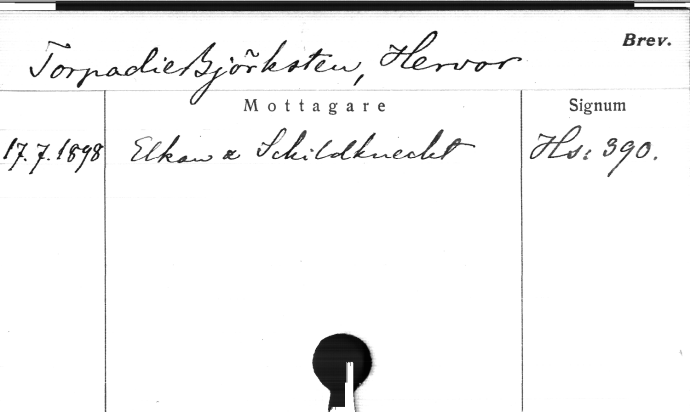 Brev.
Torpadie Björksten, Hervor
Mottagare
Signum
17.7.1898 Elkan & Schildknecht Hs: 390.